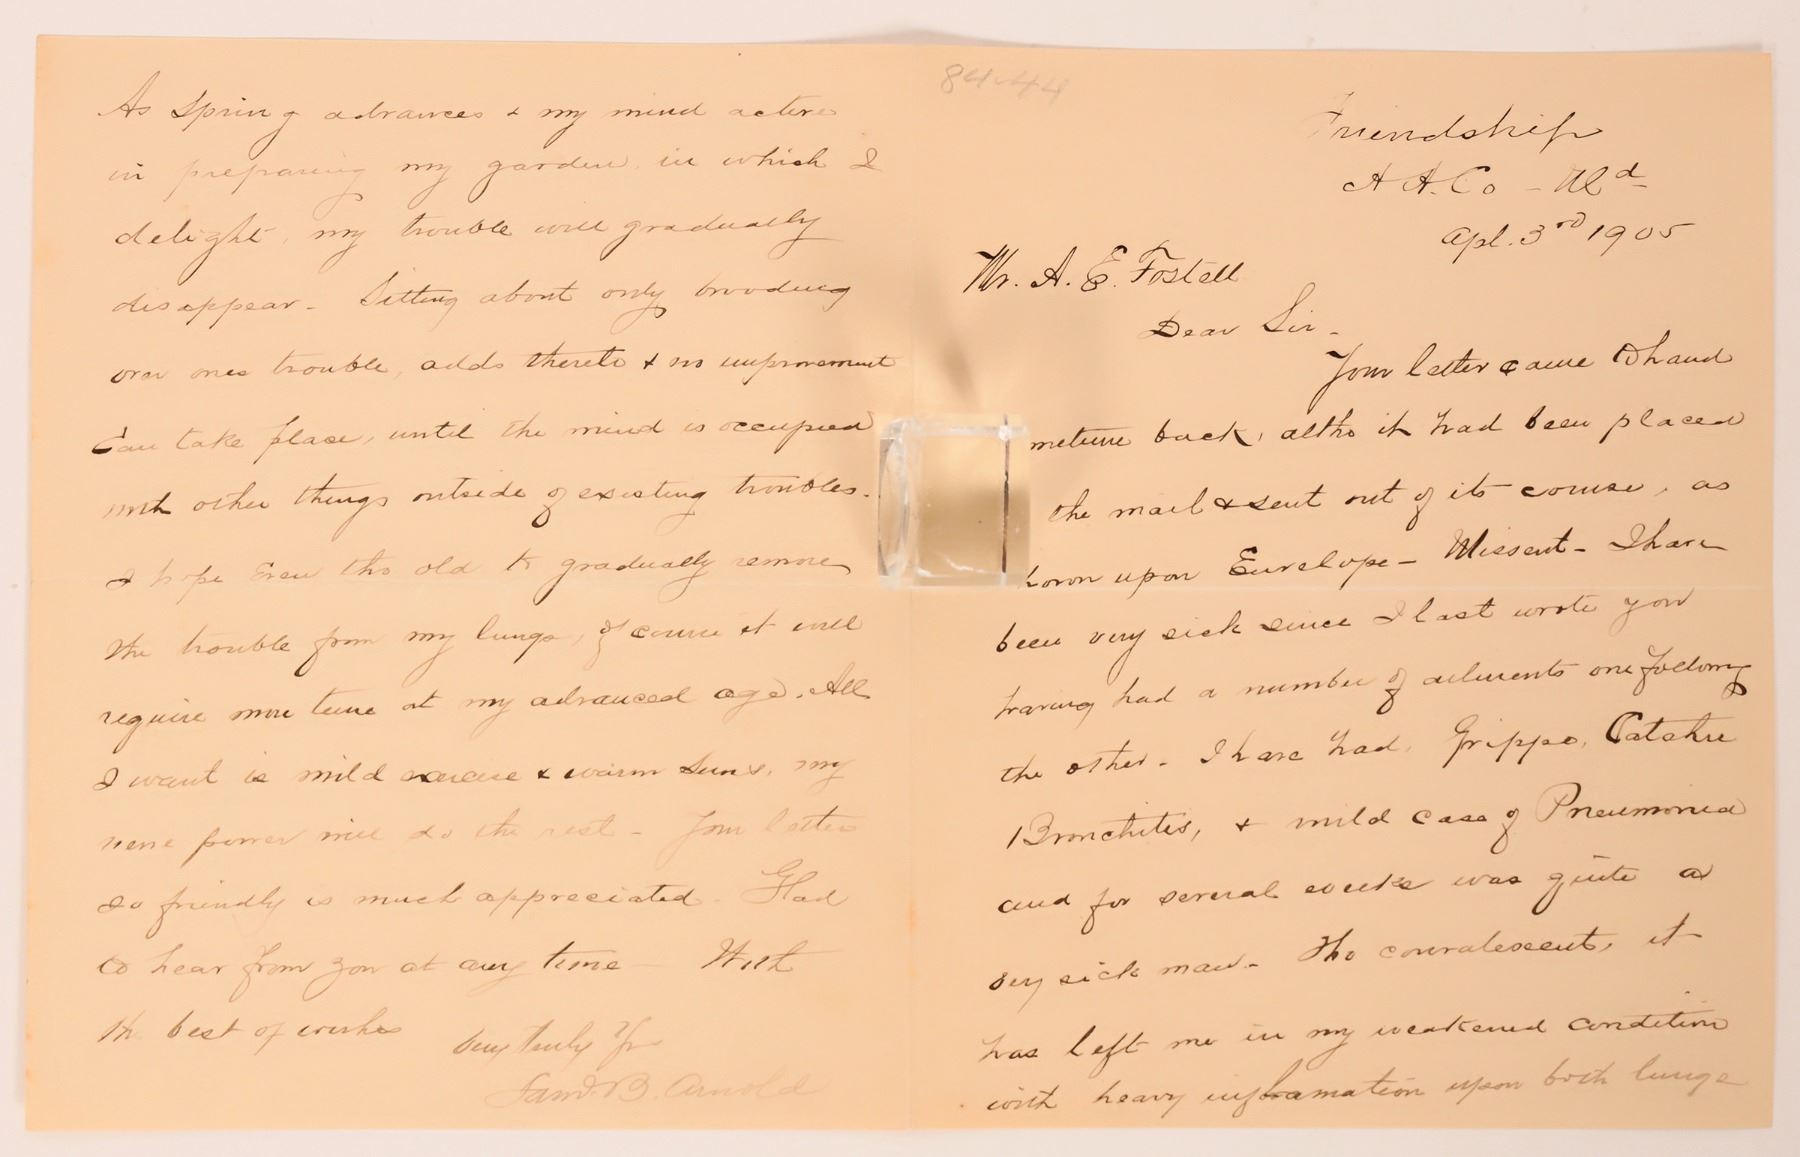 84-44
Friendship
A A. Co - Md
Apl. 3rd 1905
Mr. A. E. Fostell
Dear Sir -
Your letter came to hand
metime back, altho it had been placed
the mail & sent out of its course, as
hown upon Envelope - Missent - I have
been very sick since I last wrote you
having had a number of ailments one following
the other - I have had, Grippe, Catahr
Bronchitis, & mild case of Pneumonia
and for several weeks was quite a
very sick man - Tho convalescent, it
has left me in my weakened condition
with heavy inflamation upon both lungs
As Spring advances & my mind active
in preparing my garden, in which I
delight, my trouble will gradually
disappear - Sitting about only brooding
over ones trouble, adds thereto & no improvement
can take place, until the mind is occupied
with other things outside of existing troubles.
I hope even tho old to gradually remove
the trouble from my lungs, of course it will
require more time at my advanced age. All
I want is mild exercise & warm Suns, my
nerve power will do the rest - Your letter
so friendly is much appreciated. Glad
to hear from you at any time - With
the best of wishes
Very truly Yr
Saml. B. Arnold